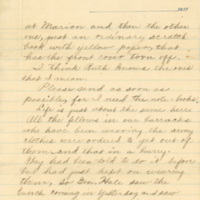 at Marion and then the other
one, just an ordinary scratch
book with yellow paper, that
has the front cover torn off.
I think Ruth knows the one
that I mean.
Please send as soon as
possible for I need the note books.
Life is just about the same here.
All the fellows in our barracks
who have been wearing the army
clothes were ordered to get out of
them, and that in a hurry.
They had been told to do it before
but had just kept on wearing
them. So Gen. Hale saw the
bunch coming in yesterday and saw